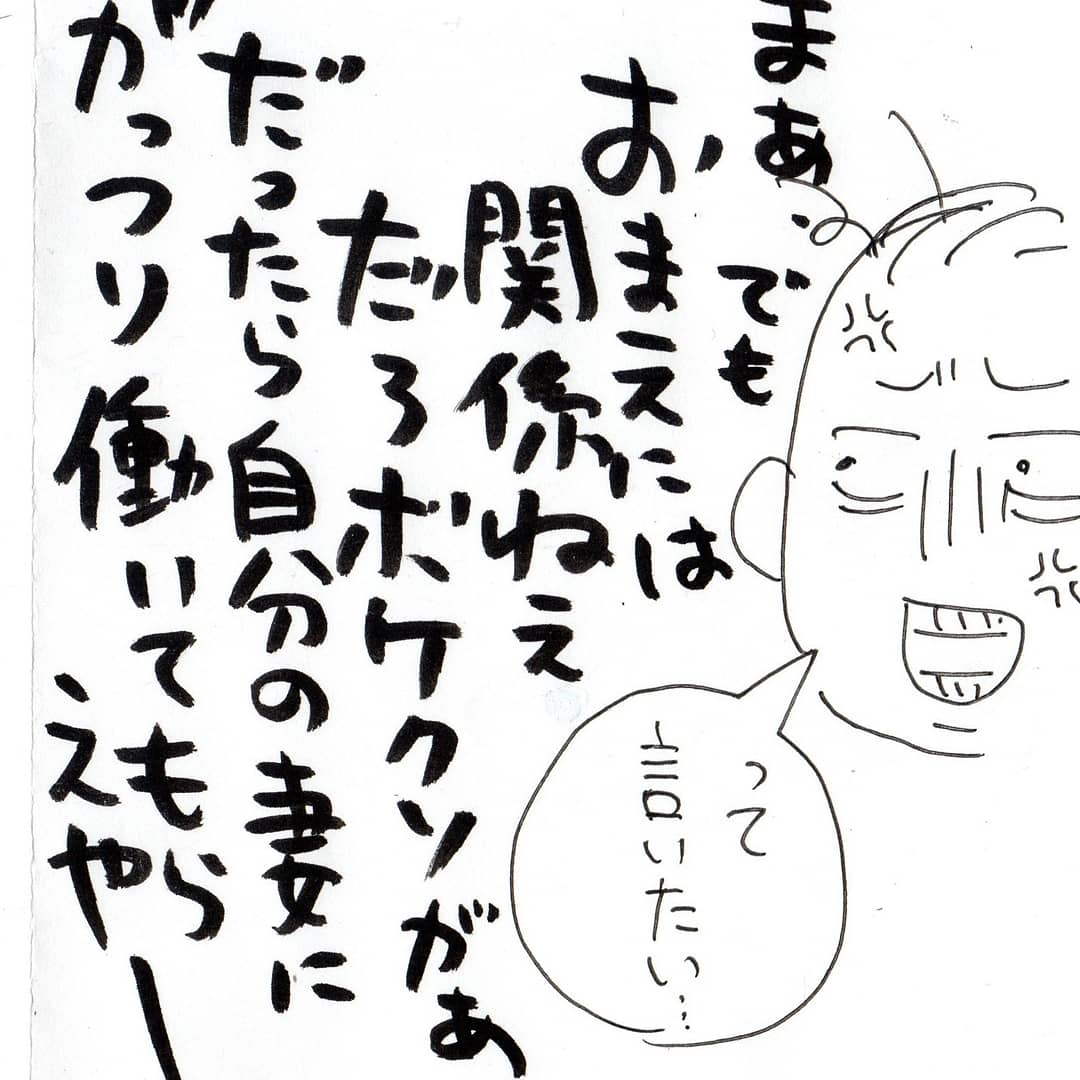 まぁ、
でも
おまえには
関係ねえ
だろボケクソがぁ
だったら自分の妻に
がっつり働いてもら
えやー
って
言いたい…